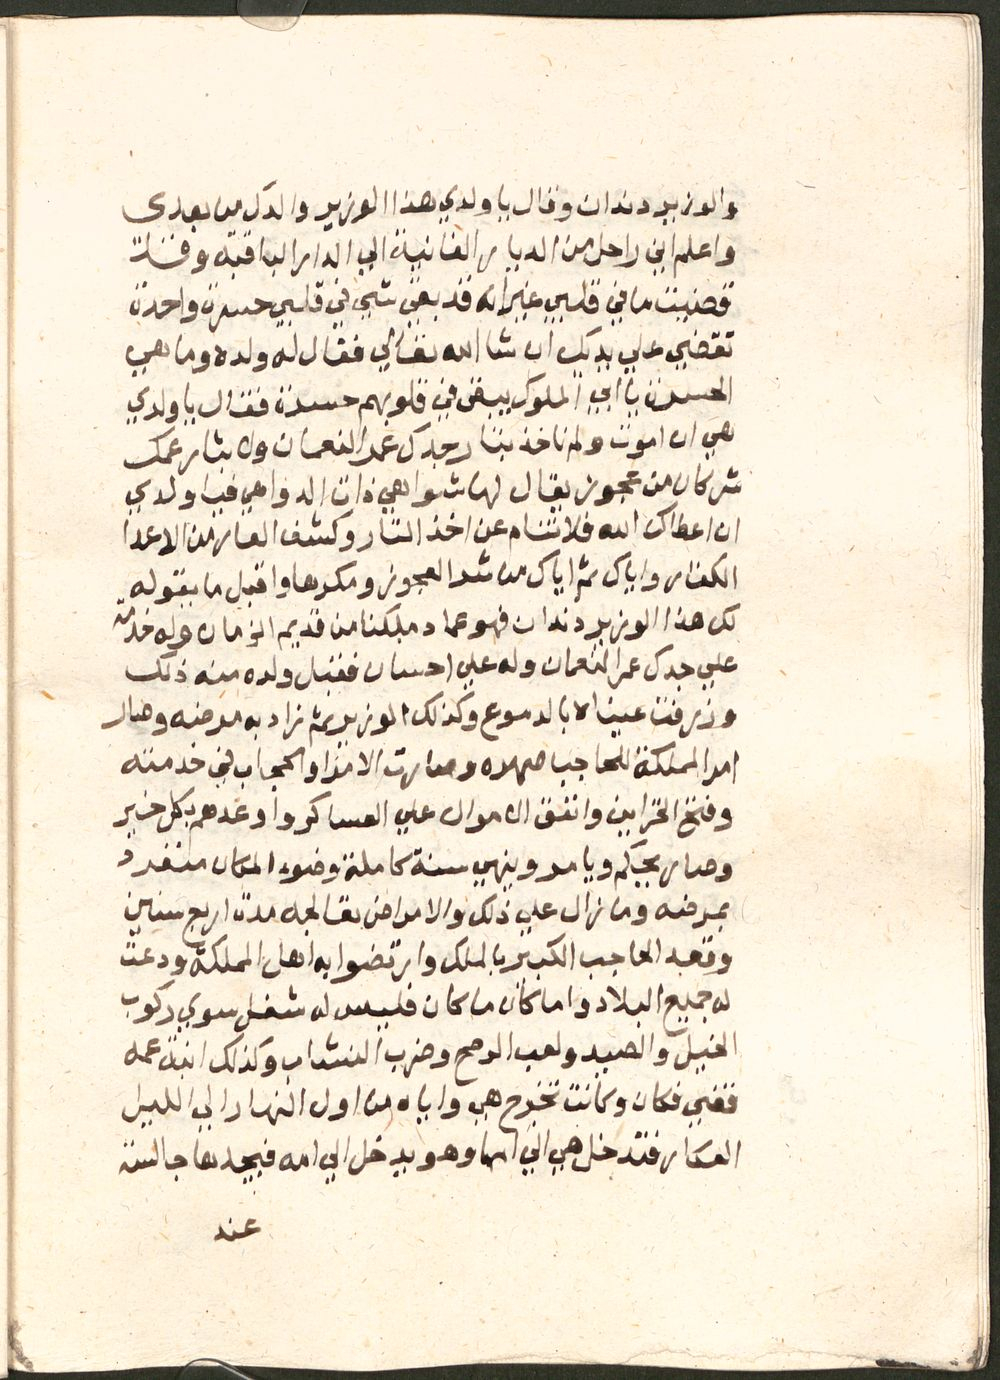 والوزير دندان وقال يا ولدي هذا الوزير والدك من بعدى
واعلم اني راحل من الديار الفانية الي الدار الباقيه وقد
قضيت ما في قلبي غير انه قد بقي شي في قلبي حسرة واحدة
تقضي علي يديك ان شا الله تعالي فقال له ولده وما هي
الحسرة يا ابي الملوك يبقي في قلوبهم حسرة فقال يا ولدي
هي ان اموت ولم ناخذ بتار جدك عمر النعمان ولا بتار عمك
شركان من عجوز يقال لها شواهي ذات الدواهي فيا ولدي
ان اعطاك الله فلا تنام عن اخذ التار وكشف العار من الاعدا
الكفار واياك ثم اياك من شر العجوز ومكرها واقبل ما يقوله
لك هذا الوزير دندان فهو عماد ملكنا من قديم الزمان وله خدمة
علي جدك عمر النعمان وله علي احسان فقبل ولده منه ذلك
وزرفت عيناه بالدموع وكذلك الوزير ثم زاد به مرضه وصار
امر المملكة للحاجب صهره وصارت الامرا والحجاب في خدمته
وفتح الخزاين وانفق الاموال علي العساكر واوعدهم بكل خير
وصار يحكم ويامر وينهي سنة كاملة وضوء المكان منفرد
بمرضه وما زال علي ذلك والامراض تعالجه مدة اربع سنين
وقعد الحاجب الكبير بالملك وارتضوا به اهل المملكة ودعت
له جميع البلاد واما كان ما كان فليس له شغل سوي ركوب
الخيل والصيد ولعب الرمح وضرب النشاب وكذلك ابنة عمه
قضي فكان وكانت تخرج هي واياه من اول النهار الي الليل
العكار فتدخل هي الي امها وهو يدخل الي امه فيجدها جالسة
عند